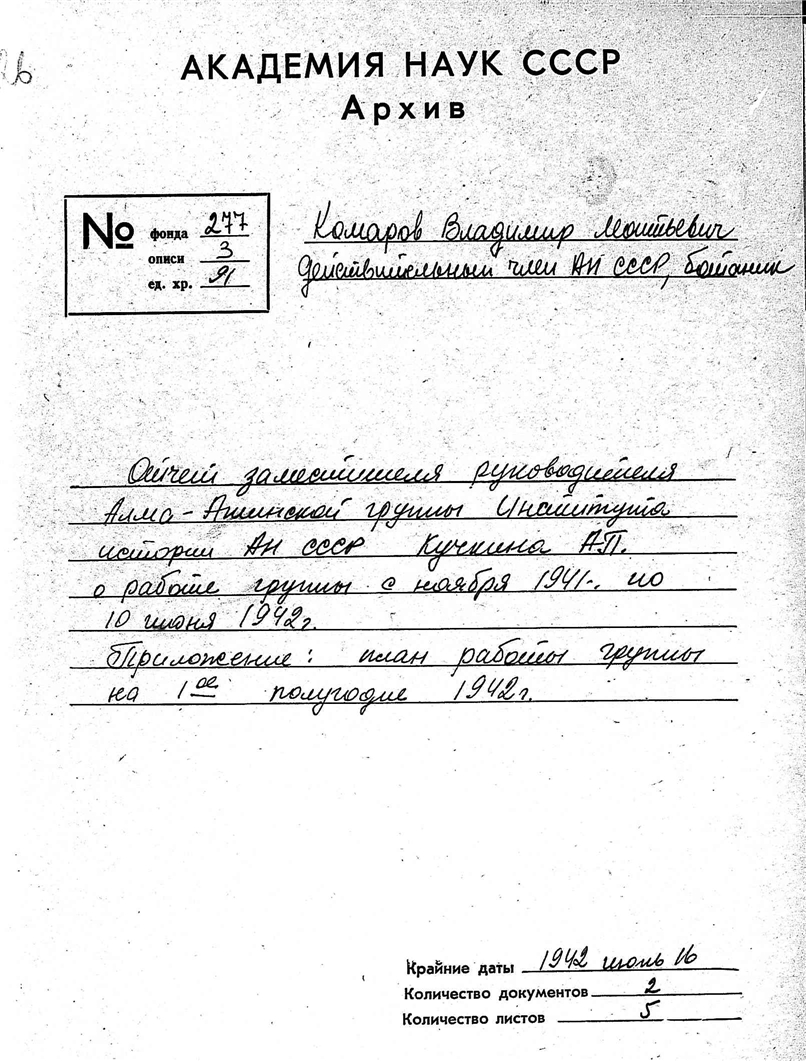 26
АКАДЕМИЯ НАУК СССР
Архив
№ фонда 277
описи 3
ед. хр. 91
Комаров Владимир Леонтьевич
Действительный член АН СССР, ботаник
Отчет заместителя руководителя
Алма-Атинской группы Института
истории АН СССР Кучкина А.П.
о работе группы с ноября 1941г. по
10 июня 1942г.
Приложение: план работы группы
на 1ое полугодие 1942г.
Крайние даты 1942 июнь 16
Количество документов 2
Количество листов 5